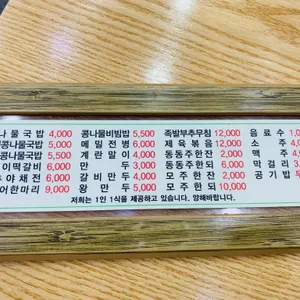 나물국밥 4,000 콩나물비빔밥 5,500 족발부추무침 12,000 음료수
콩나물국밥 5,500 메밀전병 6,000 제육볶음 12,000 소주
콩나물국밥 5,500 계란말이 4,000 동동주한잔 2,000 맥주
이떡갈비 6,000 만두 3,000 동동주한되 6,000 막걸리
야채전 6,000 갈비만두 4,000 모주한잔 2,000 공기밥
어한마리 9,000 왕만두 5,000 모주한되 10,000
저희는 1인 1식을 제공하고 있습니다. 양해바랍니다.